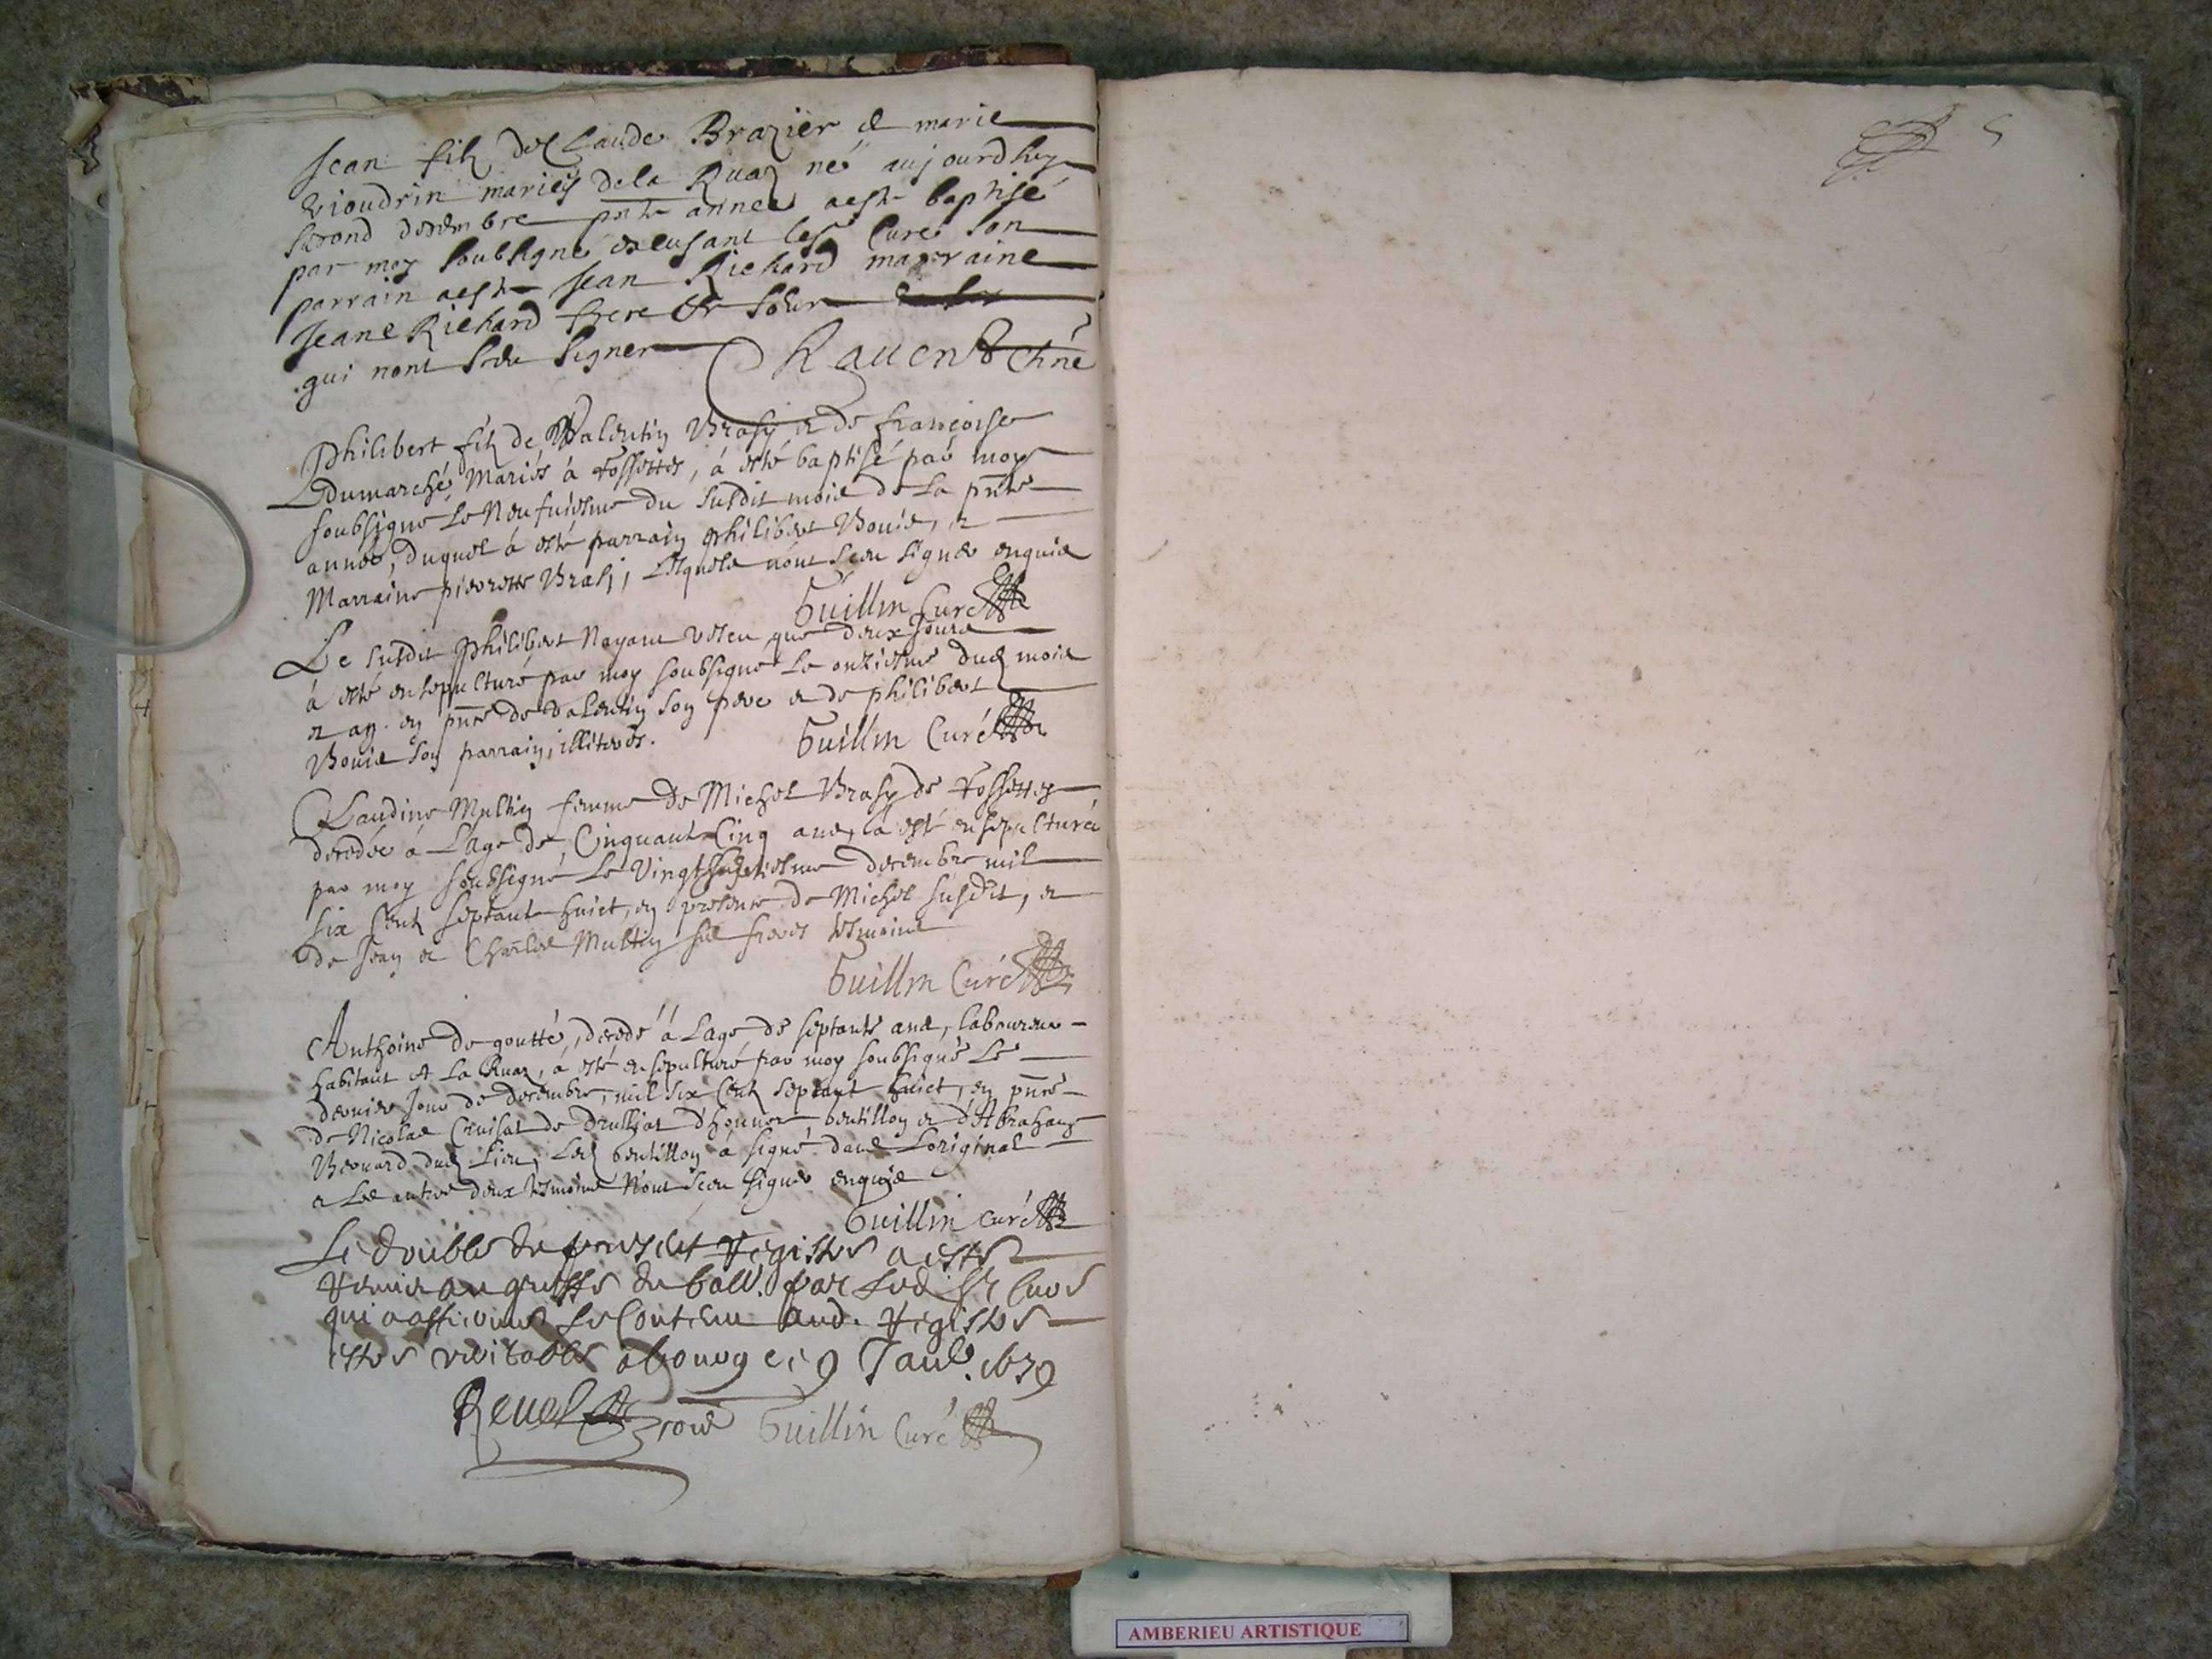 Jean filz de Claude Brazier & marie
vioudrin mariés dela Ruaz né aujourdhuy
second decembre pnte année aeste baptisé
par moy soubsigné excusant les Curé son
parrain aeste Jean Richard marraine
Jeane Richard frere & soeur
qui nont sceu signer Ravend
Philibert filz de Valentin Brasy et de françoise
Dumarché, Mariés à Fossettes, à esté baptisé par moy
soubsigné le Neufuiesme du susdit mois de la pnte
année, duquel à esté parrain philibert Bouis, et
Marraine pierrette Brasj, lesquels nont sceu signer enquis
Guillin Curé
Le susdit Philibert Nayant vescu que deux jours
à esté ensepulturé par moy soubsigné le onziesme dud mois
et an en pnce de Valentin son pere et de philibert
Bouis son parrain, illiterés.
Guillin Curé
Claudine Multin femme de Michel Brasy de Fossettes
decedée à Lage de Cinquante Cinq ans, à esté ensepulturée
par moy soubsigné le Vingt decembre mil
six Centz septante huict, en presence de Michel susdit, et
de Jean et Charles Multin ses freres tesmoins
Guillin Curé
Anthoine de goutte, decedé à Lage de septante ans, laboureur
habitant A la Ruaz, à esté ensepulturé par moy soubsigné le
dernier jour de decembre, mil six Centz septante huict, en pnce
de Nicolas Cruisat de Drulliat d'honnor bentillon et d'Abraham
Beouard dud Lieu, Led bentillon à signé dans Loriginal
et Les autres deux tesmoins Nont sceu signer enquis
Guillin curé
Le double du present Registre a esté
Remis au greffe du ball. par led Sr Curé
qui a affirmé le Contenu aud. Registre
estre veritable a bourg ce 9 Janv. 1679
Revel Guillin Curé
5
AMBERIEU ARTISTIQUE